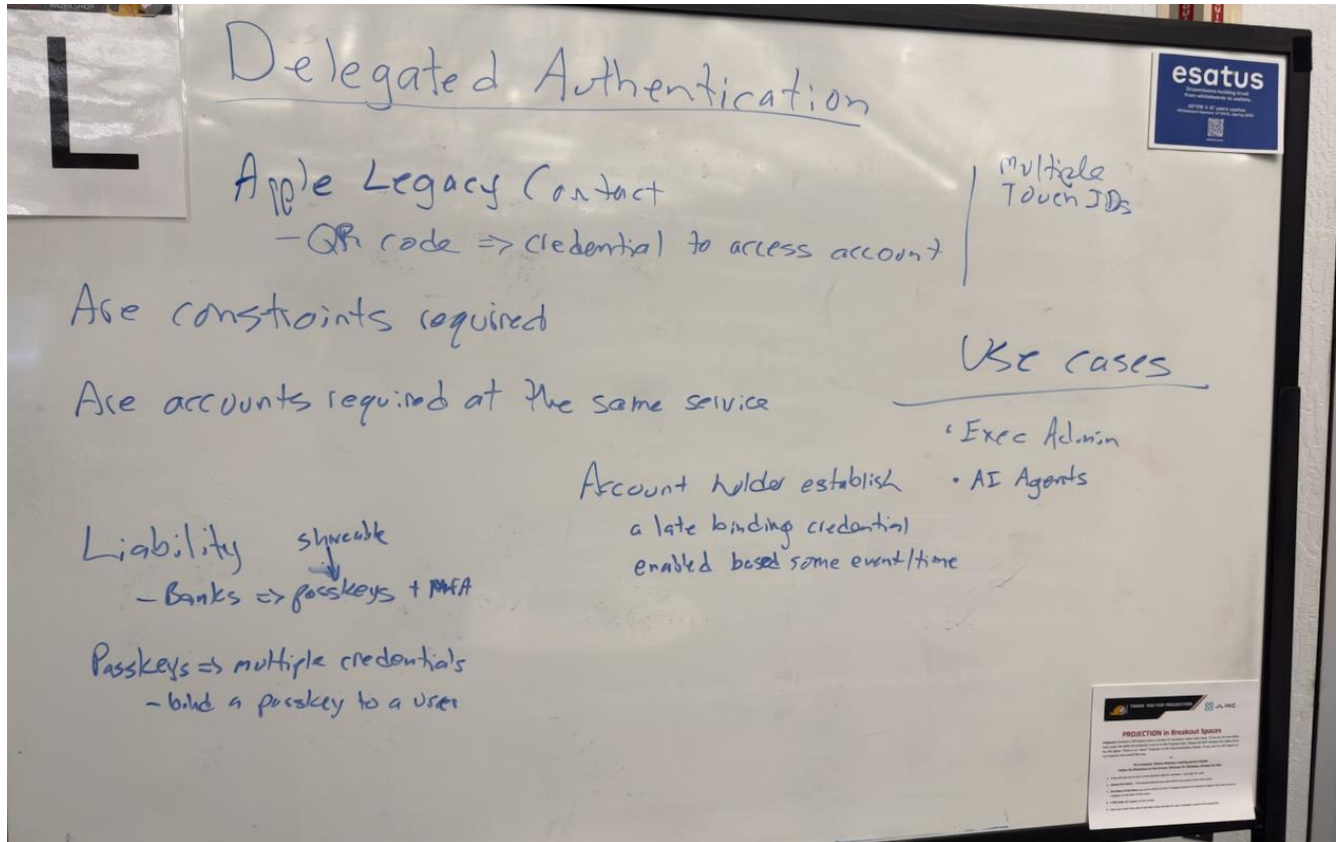 WORKSHOP
L
Delegated Authentication
Apple Legacy Contact
- QR code => credential to access account
Multiple
Touch IDs
Are constraints required
Are accounts required at the same service
Use cases
• Exec Admin
• AI Agents
Account holder establish
a late binding credential
enabled based some event/time
Liability
shareable
- Banks => passkeys + MFA
Passkeys => multiple credentials
- bind a passkey to a user
esatus
from whiteboards to wallets.
THANK YOU FOR PROJECTION
JLINC
PROJECTION in Breakout Spaces